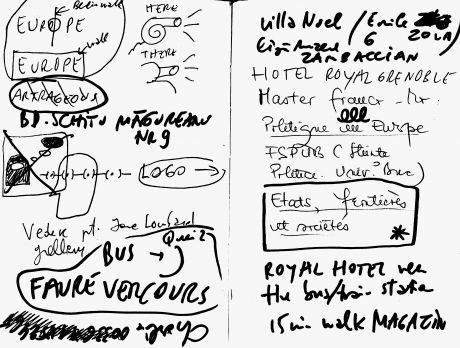 Berlin wall
EUROPE
wall
EUROPE
ARTRAGEOUS
HERE
THERE
BD. SCHITU MĂGUREANU
NR 9
LOGO
Vedere pt. Jane Lombard
gallery
BUS → Quai 2
FAURÉ VERCOURS
Villa Noel / Emile
6 ZOLA)
ZAMBACCIAN
HOTEL ROYAL GRENOBLE
Master franco-
Politique en Europe
FSPUB (Științe
Politice. Univ. Buc)
Etats, frontières
et sociétés
*
ROYAL HOTEL
the bus/train station
15 min walk MAGAZIN